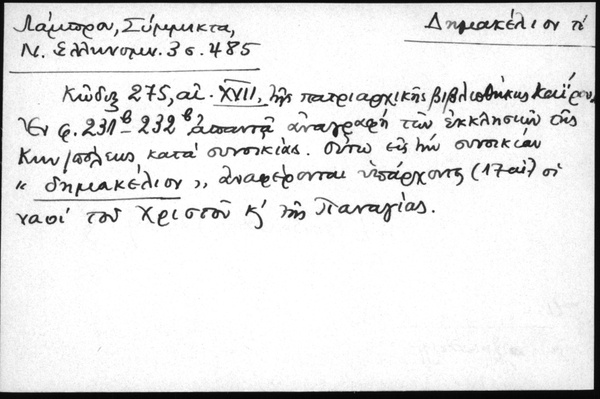 Λάμπρου, Σύμμικτα,
Ν. Ἑλληνομν. 3 σ. 485
Δημακέλιον τί
Κῶδιξ 275, αἰ. XVII, τῆς πατριαρχικῆς βιβλιοθήκης Καΐρου.
Ἐν φ. 231β-232β ἀπαντᾷ ἀναγραφὴ τῶν ἐκκλησιῶν τῆς
Κων/πόλεως κατὰ συνοικίας. Οὕτω εἰς τὴν συνοικίαν
" δημακέλιον ", ἀναφέρονται ὑπάρχοντες (17 αἰ) οἱ
ναοὶ τοῦ Χριστοῦ κ' τῆς Παναγίας.